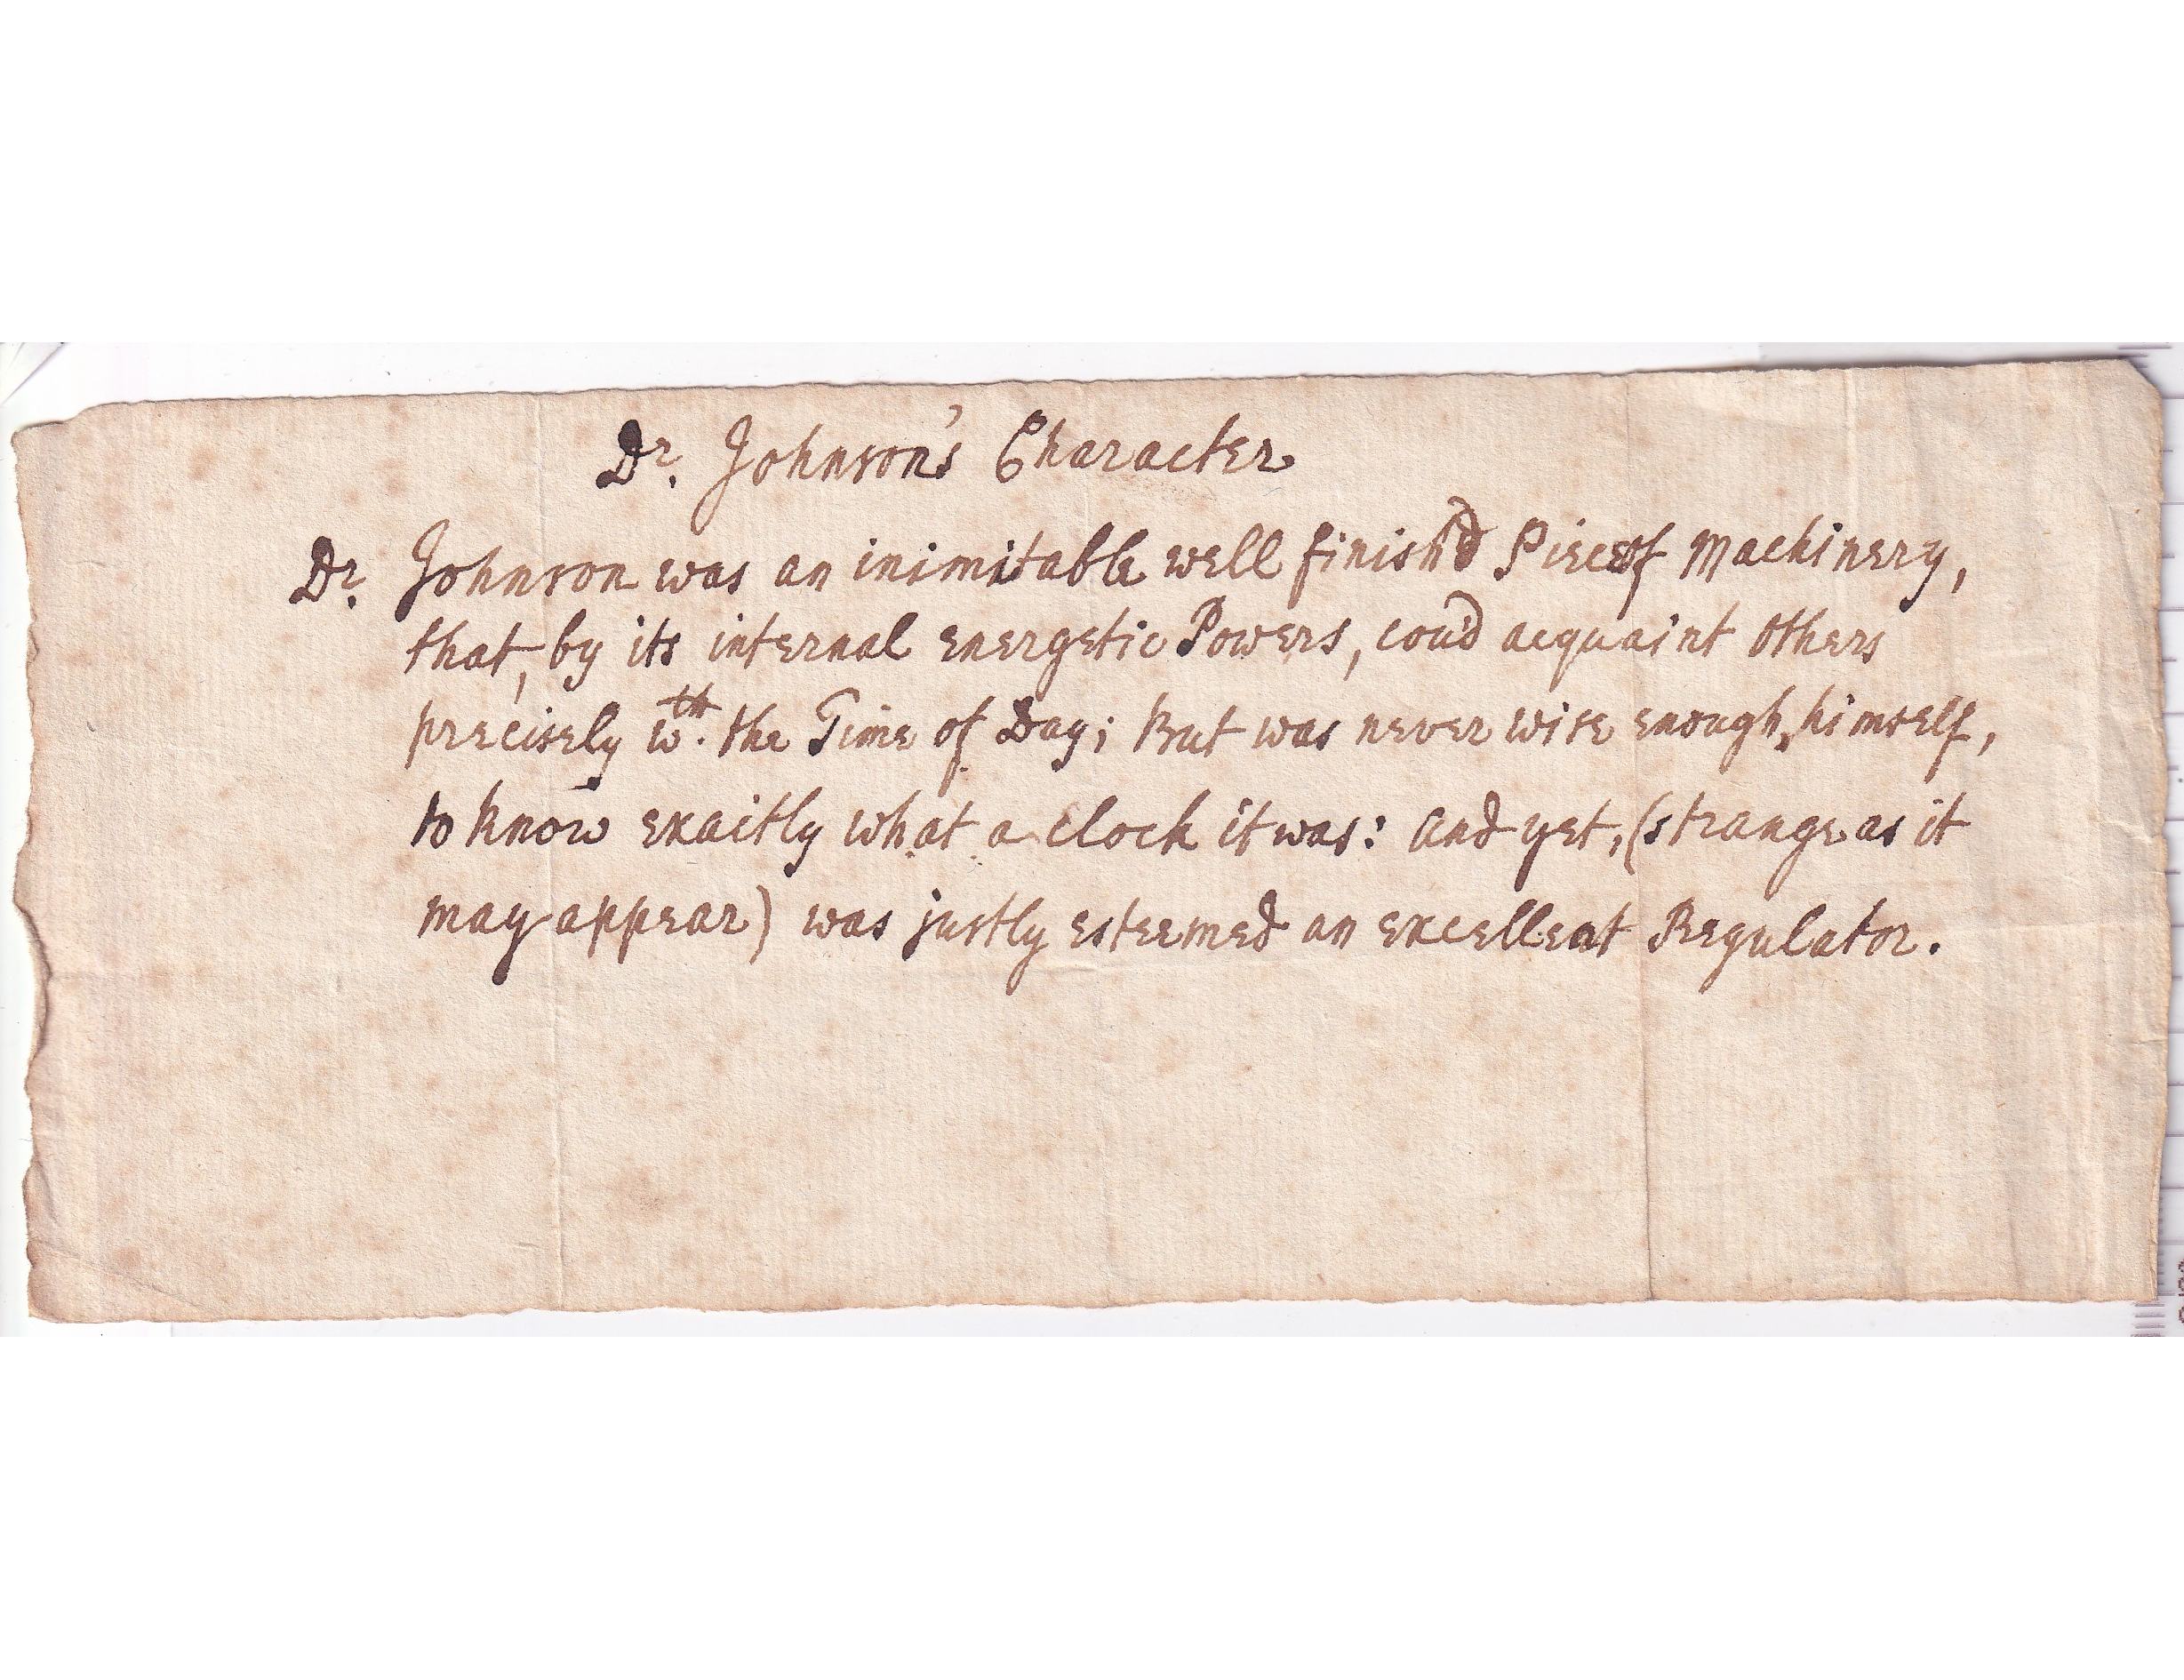 Dr. Johnson's Character
Dr. Johnson was an inimitable well finish'd Piece of Machinery,
that, by its internal energetic Powers, cou'd acquaint others
precisely wth. the Time of Day; But was never wise enough, himself,
to know exactly what a clock it was: and yet, (strange as it
may appear) was justly esteemed an excellent Regulator.